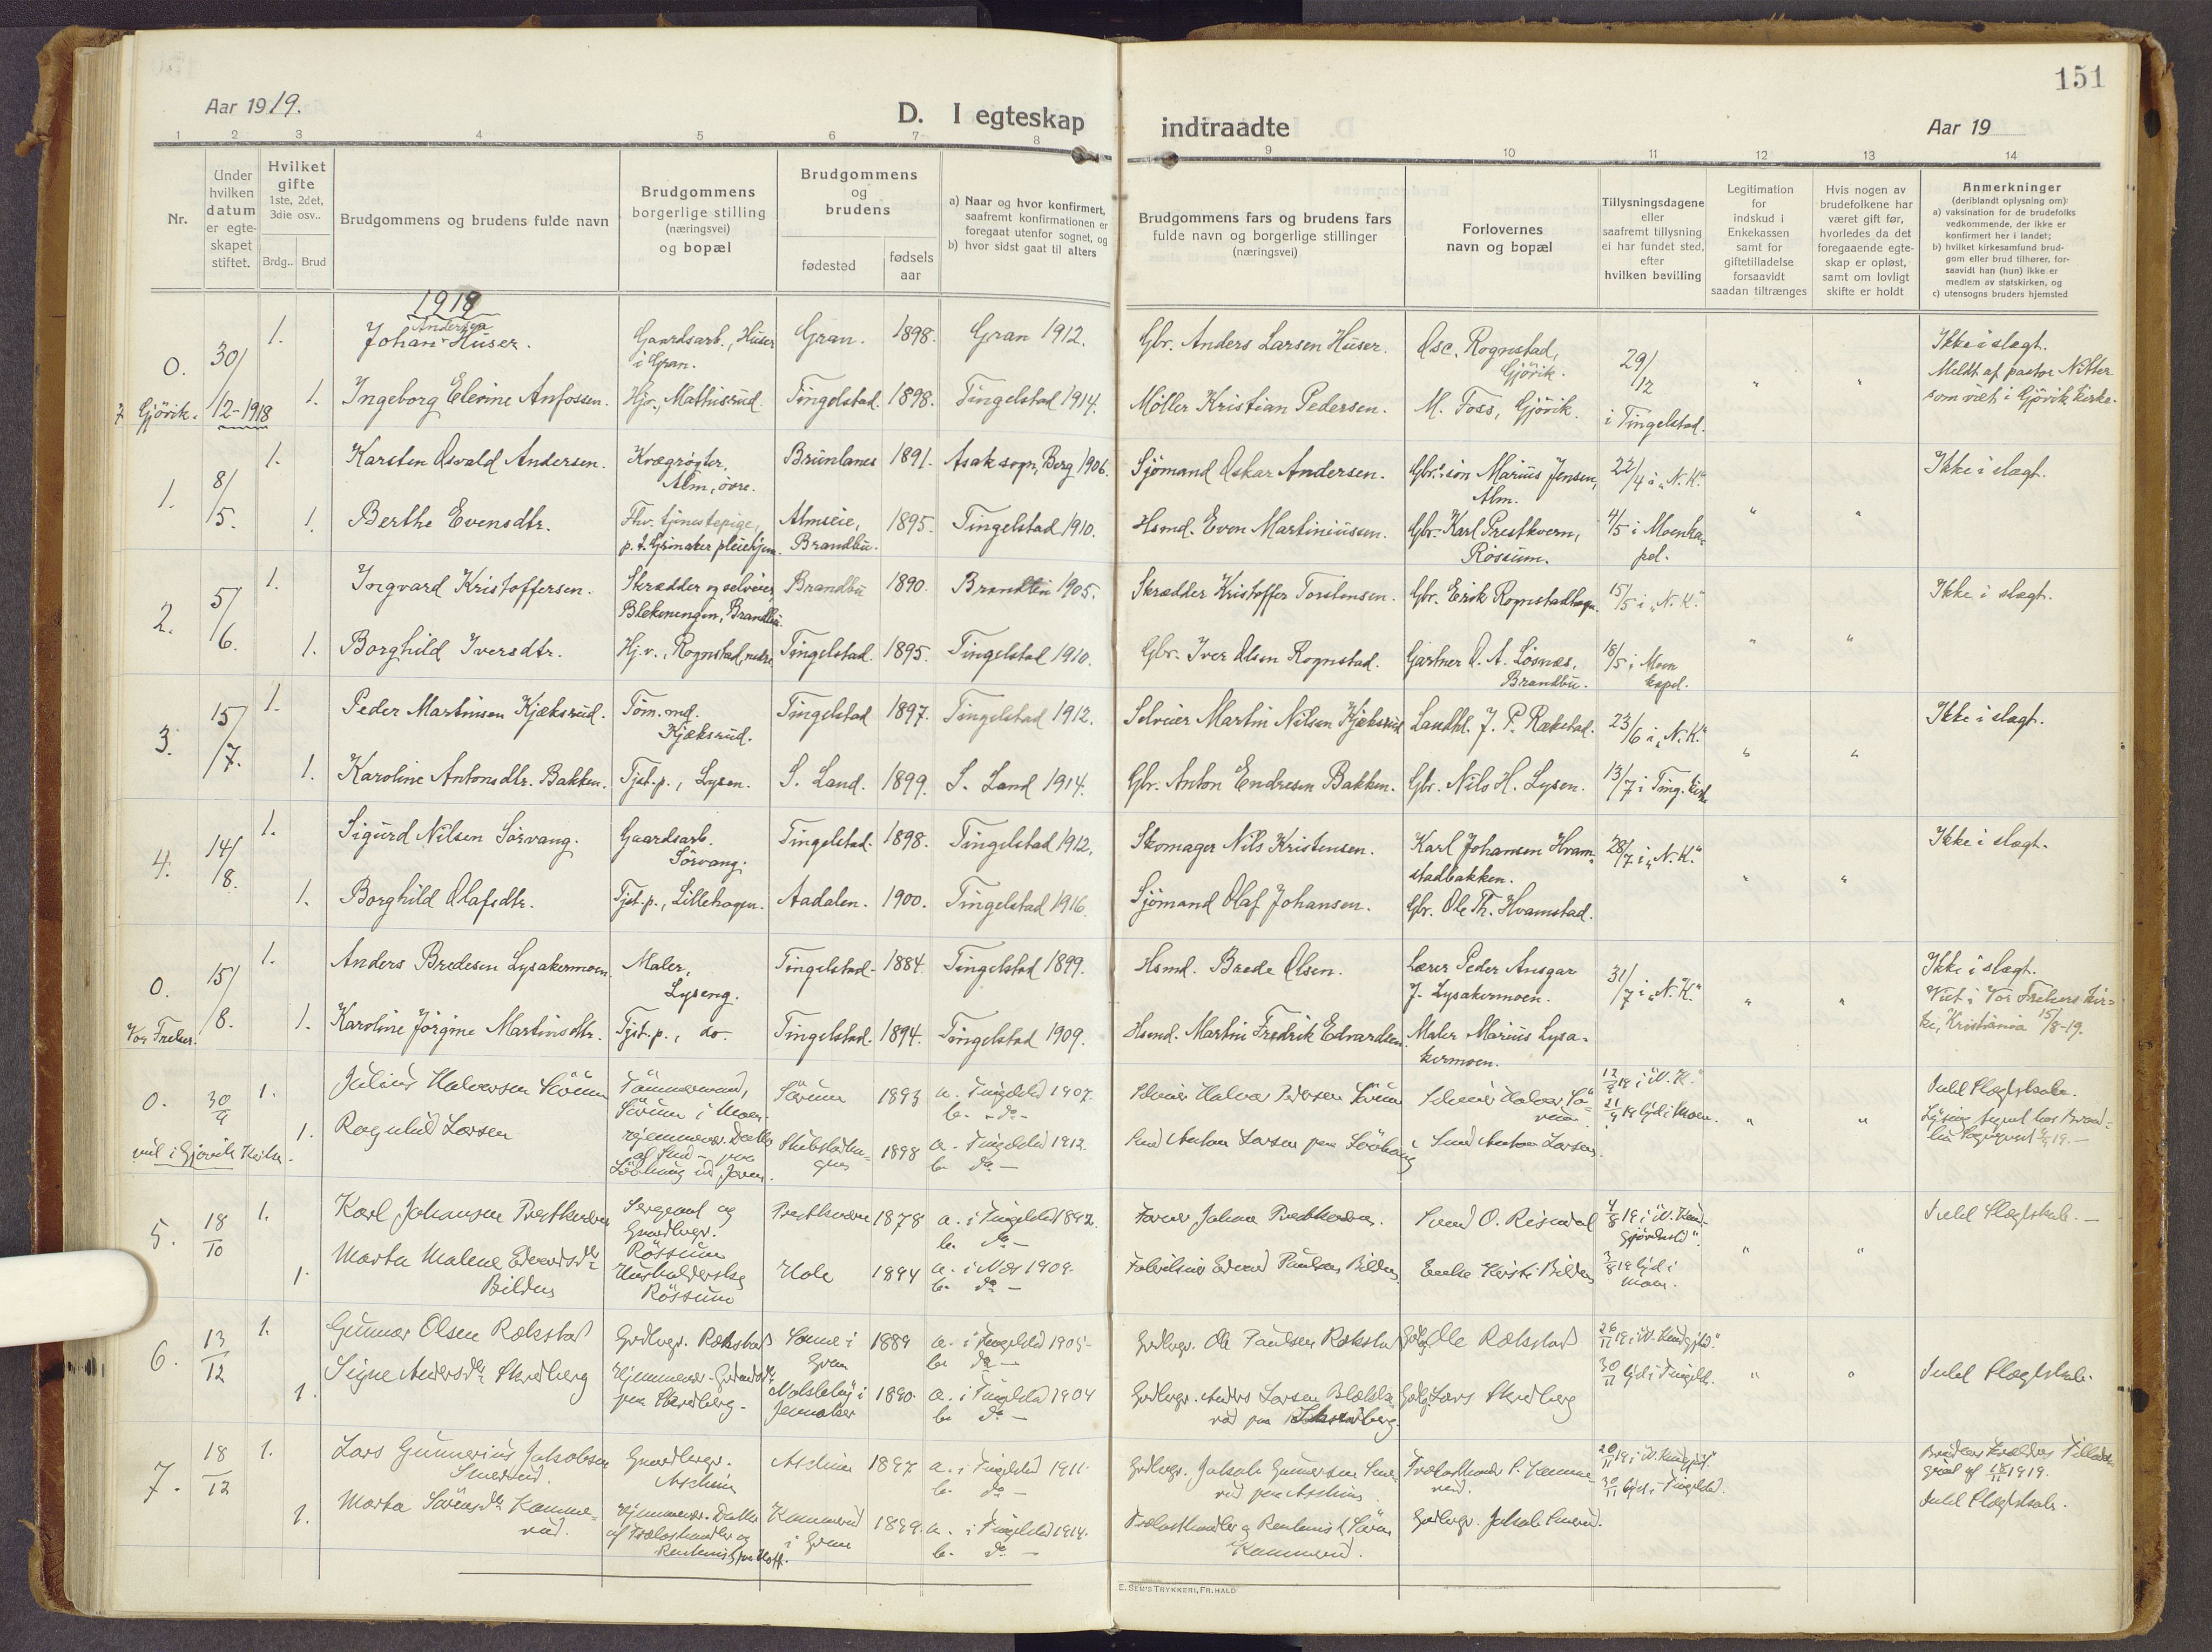 151
Aar 1919.
D. I egteskap
indtraadte
Aar 19
1 2 3 4 5 6 7 8 9 10 11 12 13 14
Nr.
Under hvilken datum er egteskapet stiftet.
Hvilket gifte 1ste, 2det, 3die osv..
Brdg.. Brud
Brudgommens og brudens fulde navn
Brudgommens borgerlige stilling (næringsvei) og bopæl
Brudgommens og brudens
fødested
fødsels aar
a) Naar og hvor konfirmert, saafremt konfirmationen er foregaat utenfor sognet, og
b) hvor sidst gaat til alters
Brudgommens fars og brudens fars fulde navn og borgerlige stillinger (næringsvei)
Forlovernes navn og bopæl
Tillysningsdagene eller saafremt tillysning ei har fundet sted, efter hvilken bevilling
Legitimation for indskud i Enkekassen samt for giftetilladelse forsaavidt saadan tiltrænges
Hvis nogen av brudefolkene har været gift før, hvorledes da det foregaaende egteskap er opløst, samt om lovligt skifte er holdt
Anmerkninger (deriblandt oplysning om):
a) vaksination for de brudefolks vedkommende, der ikke er konfirmert her i landet;
b) hvilket kirkesamfund brudgom eller brud tilhører, forsaavidt han (hun) ikke er medlem av statskirken, og
c) utensogns bruders hjemsted
1918
0. 30/12-1918 1. Johan Andersen Huser. Gaardsarb., Huser i Gran. Gran. 1898. Gran 1912. Gbr. Anders Larsen Huser. Osc. Rognstad, Gjövik. 29/12 i Tingelstad. " " Ikke i slegt. Meldt af pastor Nitter som viet i Gjövik Kirke.
Gjövik. 1. Ingeborg Elevine Anfossen. Hjv., Mathisrud. Tingelstad. 1898. Tingelstad 1914. Möller Kristian Pedersen. M. Foss, Gjövik.
1. 8/5. 1. Karsten Osvald Andersen. Krøgrögter, Alm, övre. Brunlanes 1891. Asak sogn, Berg 1906. Sjömand Oskar Andersen. Gbr.sön Marius Jensen, Alm. 22/4 i "N. K." " " Ikke i slegt.
1. Berthe Evensdtr. Fhv. tjenestepige, p. t. Grinaker pleiehjem. Almseie, Brandbu. 1895. Tingelstad 1910. Hsmd. Even Martiniussen. Gbr. Karl Prestkvern, Røssum. 4/5 i Moenkapel.
2. 5/6. 1. Ingvard Kristoffersen. Skrædder og selveier, Blekeningen, Brandbu. Brandbu 1890. Brandbu 1905. Skrædder Kristoffer Torstensen. Gbr. Erik Rognstadhagen. 15/5 i "N. K." " " Ikke i slegt.
1. Borghild Iversdtr. Hj.v., Rognstad, nedre. Tingelstad. 1895. Tingelstad 1910. Gbr. Iver Olsen Rognstad. Gartner O. A. Løsnæs, Brandbu. 18/5 i Moen kapel.
3. 15/7. 1. Peder Martinsen Kjæksrud. Töm.md. Kjæksrud. Tingelstad 1897. Tingelstad 1912. Selveier Martin Nilsen Kjæksrud Landhl. J. P. Rækstad. 23/6 i "N. K." " " Ikke i slegt.
1. Karoline Antonsdtr. Bakken. Tjst.p., Lysen. S. Land. 1899. S. Land 1914. Gbr. Anton Endresen Bakken. Gbr. Nils H. Lysen. 13/7 i Ting. kirke
4. 14/8. 1. Sigurd Nilsen Sörvang. Gaardsarb. Sörvang. Tingelstad. 1898. Tingelstad 1912. Skomager Nils Kristensen. Karl Johansen Hvamstadbakken. 28/7 i "N. K." " " Ikke i slegt.
1. Borghild Olafsdtr. Tjst.p., Lillehagen. Aadalen. 1900. Tingelstad 1916. Sjömand Olaf Johansen. Gbr. Ole Th. Hvamstad.
0. 15/8. 1. Anders Bredesen Lysakermoen. Maler, Lyseng. Tingelstad. 1884. Tingelstad 1899. Hsmd. Brede Olsen. Lærer Peder Ansgar J. Lysakermoen. 31/7 i "N. K." " " Ikke i slegt. Viet i Vor Frelsers Kirke, Kristiania 15/8-19.
Vor Frelser. 1. Karoline Jörgine Martinsdtr. Tjst.p., do. Tingelstad. 1894. Tingelstad 1909. Hsmd. Martin Fredrik Edvardsen. Maler Marius Lysakermoen.
0. 30/9 1. Julius Halvorsen Sörum Tömmermand, Sörum i Moen. Sörum 1893 a. Tingelstad 1907. b. do - Selveier Halvor Pedersen Sörum Selveier Halvor Sörum 12/9 19 i "N. K." 21/9 19 lyst i Moen. " "
viet i Gjövik Kirke. 1. Ragnhild Larsen 1898 a. Tingelstad 1912. b. do - Smed Anton Larsen
5. 18/10 1. Karl Johansen Prestkvern Sergeant og Gaardbrgr. Røssum Prestkvern 1878 a. i Tingelstad 1892. b. do - Johan Prestkvern. O. Risendal 4/8 19 " "
1. Marta Malene Edvardsdtr Bilden Husholderske Røssum Hole 1894 a. i 1909. b. do - Edvard Paulsen Bilden. Enke Kersti Bilden 3/8 19 lyst i Moen.
6. 13/12 1. Gunnar Olsen Rækstad Grdbrgr. Rækstad Sonne i Gran 1889 a. i Tingelstad 1905. b. do - Grdbrgr. Ole Paulsen Rækstad Ole Rækstad 26/11 19 30/11 lyst i Tingelst. " "
1. Signe Andersdtr Skredberg paa Skredberg. Jevnaker 1890 a. i Tingelstad 1904 b. do - Grdbrgr. Anders Larsen paa Skredberg. Lars Skredberg
7. 18/12 1. Lars Gunnerius Jakobsen Smerud. Gaardbrgr. Aschim Aschim 1897 a. i Tingelstad 1911. b. do - Grdbrgr. Jakob Gunnersen Smerud paa Aschim. Trælasthandler S. Kammerud. 20/11 19 30/11 lyst i Tingelstad.
1. Marta Sörensdtr Kammerud. Hjemmevær. Datter af Trælasthandler og Rentenist paa Hoff. Kammerud i Gran 1899. a. i Tingelstad 1914. b. do - Trælasthandler og Rentenist Sören Kammerud. Grdbrgr. Jakob Smerud.
E. SEM'S TRYKKERI, FR.HALD